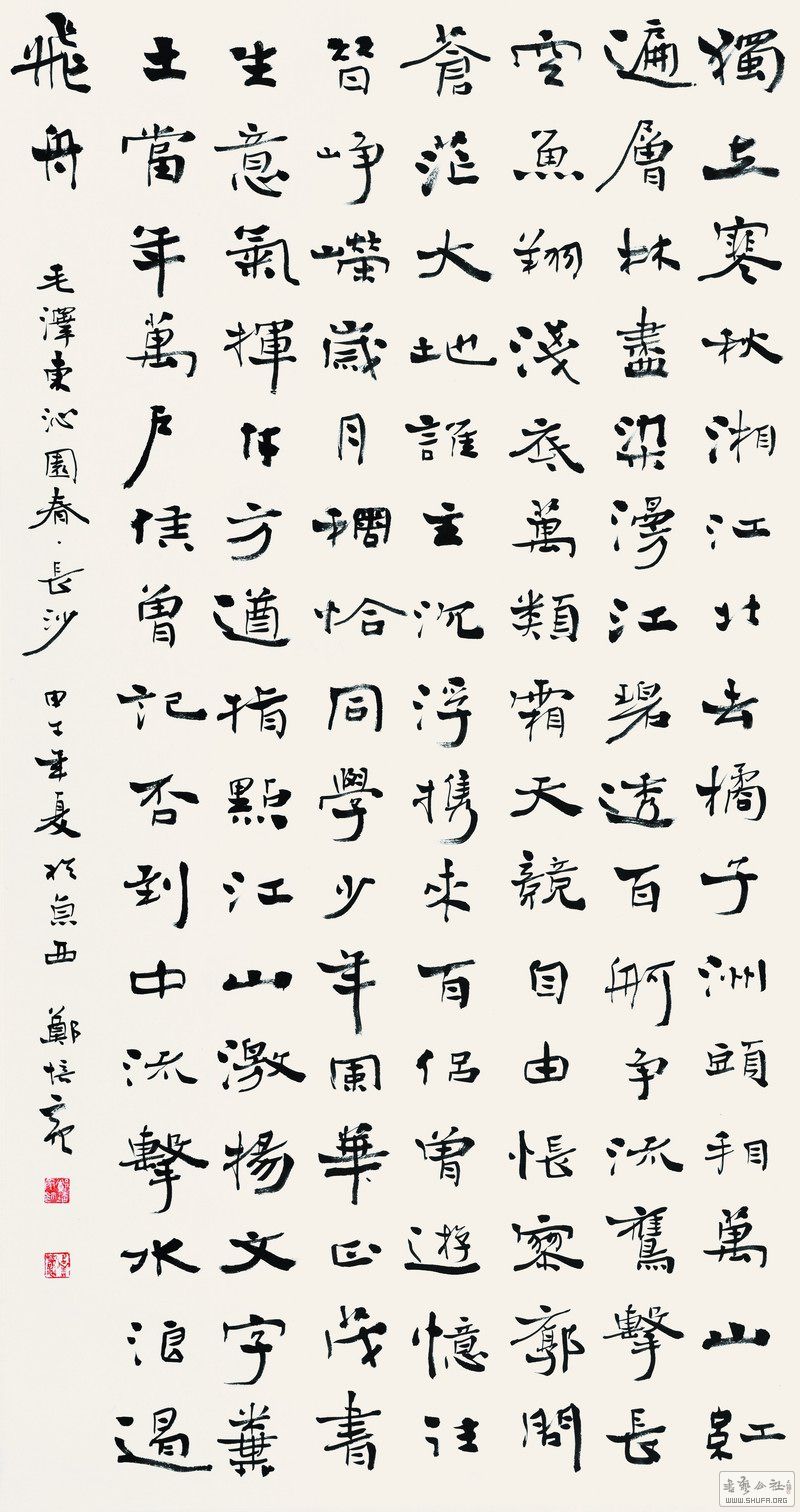 獨立寒秋湘江北去橘子洲頭看萬山紅
遍層林盡染漫江碧透百舸争流鷹擊長
空魚翔淺底萬類霜天競自由悵寥廓問
蒼茫大地誰主沉浮携來百侶曾遊憶往
昔崢嶸歲月稠恰同學少年風華正茂書
生意氣揮斥方遒指點江山激揚文字糞
土當年萬戶侯曾記否到中流擊水浪遏
飛舟 毛澤東沁園春·長沙 甲午年夏於京西 鄭培亮
WWW.SHUFA.ORG